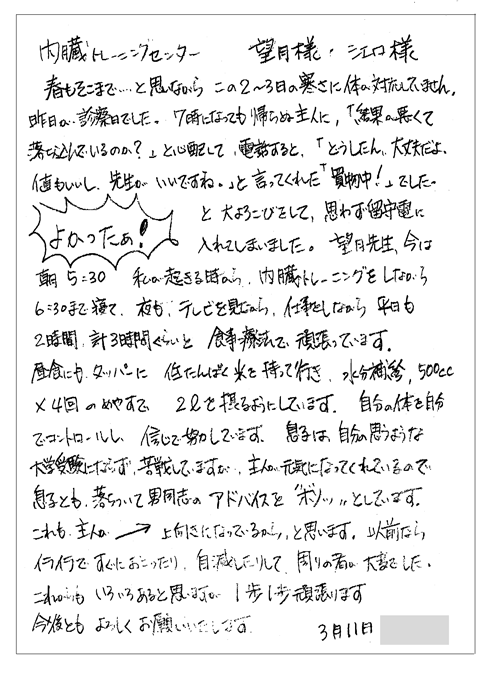 内臓トレーニングセンター 望月様・シェロ様
春もそこまで…と思いながら この2〜3日の寒さに体が対応していません。
昨日が、診察日でした。7時になっても帰らぬ主人に、「結果が悪くて
落ち込んでいるのか?」と心配して電話すると、「どうしたん、大丈夫だよ、
値もいいし、先生が いいですね。」と言ってくれた「買物中!」でした。
よかったぁ!
と大よろこびをして、思わず留守電に
入れてしまいました。望月先生、今は
朝5:30 私が起きる時から、内臓トレーニングをしながら
6:30まで寝て、夜も、テレビを見ながら、仕事をしながら 平日も
2時間、計3時間ぐらいと 食事療法で 頑張っています。
昼食にも、タッパーに 低たんぱく米を持って行き、水分補給、500cc
×4回のめやすで 2Lを摂るようにしています。自分の体を自分
でコントロールし、信じて努力しています。息子は、自分の思うような
大学受験にならず、苦戦していますが、主人が元気になってくれているので
息子とも、落ちついて男同志の アドバイスを"ボソッ"としています。
これも、主人が → 上向きになっているから、と思います。以前なら
イライラですぐにおこったり、自滅したりして、周りの者が大変でした。
これからも いろいろあると思いますが 1歩1歩頑張ります
今後とも よろしくお願いいたします
3月11日